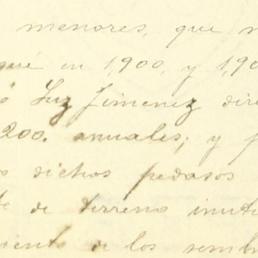 menores, que
en 1,900, y 1,90
Luz Jimenez dir
200. anuales; y p
dichos pedasos
de terreno inuti
iento de los sembr